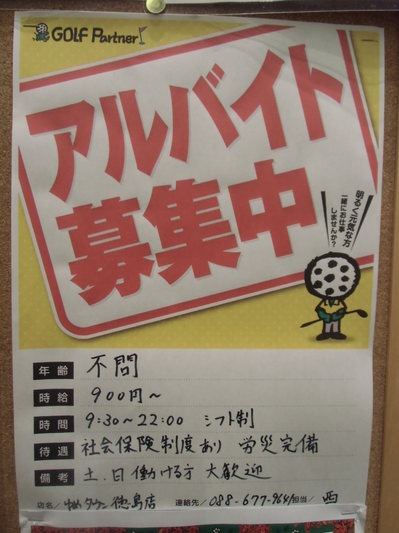 GOLF Partner
アルバイト
募集中
明るく元気な方
一緒にお仕事
しませんか?
年齢 不問
時給 900円~
時間 9:30~22:00 シフト制
待遇 社会保険制度あり 労災完備
備考 土、日働ける方 大歓迎
店名/ ゆめタウン徳島店 連絡先/ 088-677-9641 担当/ 西